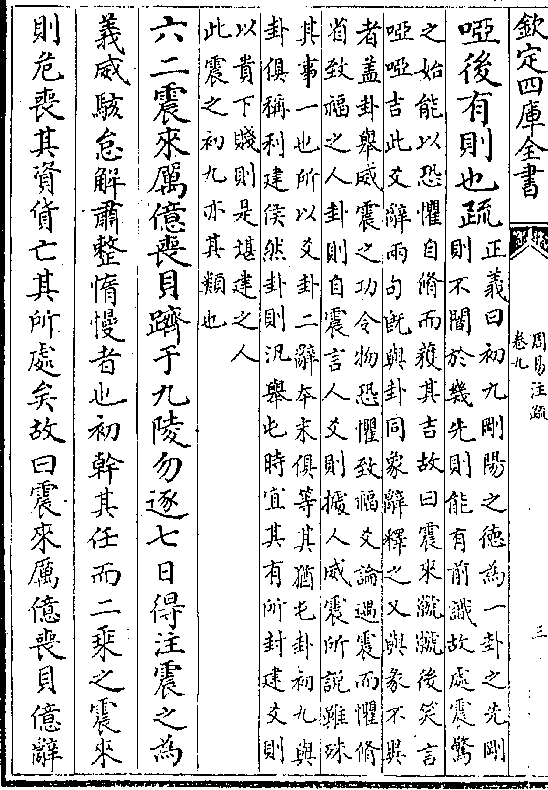 欽定四庫全書
周易注疏
卷九
三
啞後有則也疏
正義曰初九剛陽之德為一卦之先剛
則不闇於幾先則能有前識故處震驚
之始能以恐懼自脩而獲其吉故曰震來虩虩後笑言
啞啞吉此爻辭兩句既與卦同象辭釋之又與彖不異
者蓋卦舉威震之功令物恐懼致福爻論遇震而懼脩
省致福之人卦則自震言人爻則據人威震所說雖殊
其事一也所以爻卦二辭本末俱等其猶屯卦初九與
卦俱稱利建侯然卦則汎舉屯時宜其有所封建爻則
以貴下賤則是堪建之人
此震之初九亦其類也
六二震來厲億喪貝躋于九陵勿逐七日得注震之為
義威駭怠解肅整惰慢者也初幹其任而二乘之震來
則危喪其資貨亡其所處矣故曰震來厲億喪貝億辭